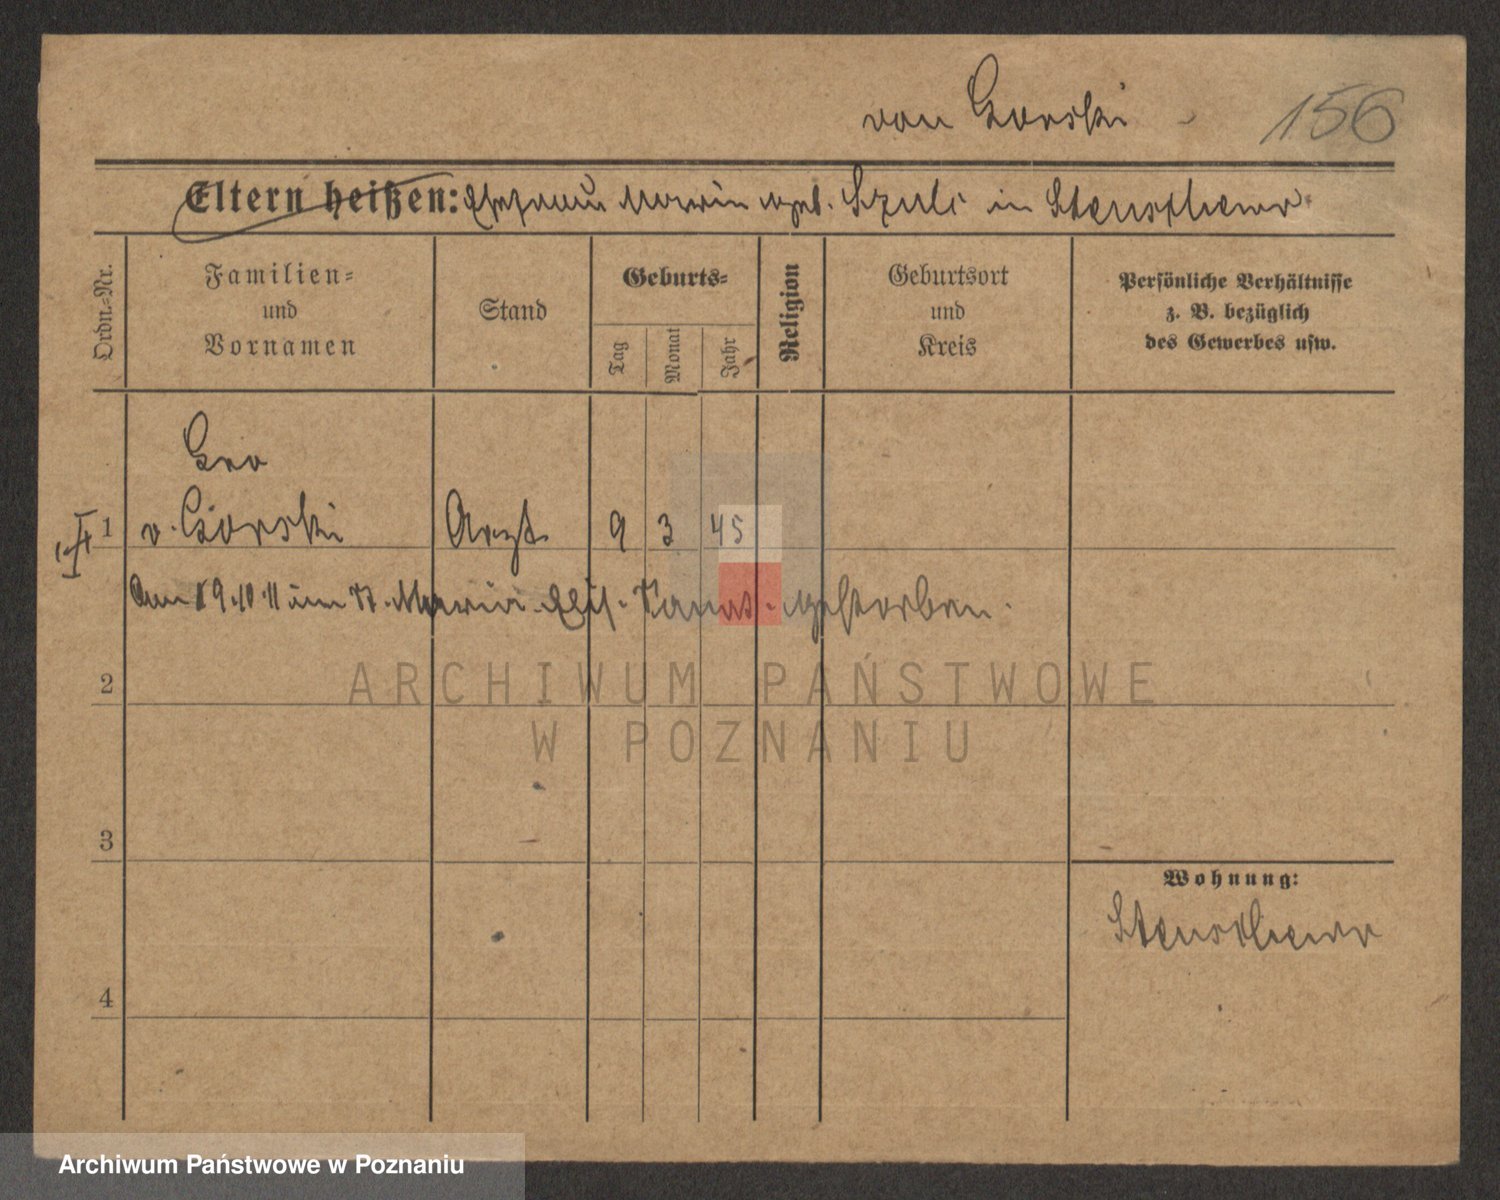 von Gorski 156
Eltern heißen: Ehefrau Maria geb. Szulc in Stenschewo
Ordn.-Nr.
Familien-
und
Vornamen
Stand
Geburts-
Tag
Monat
Jahr
Religion
Geburtsort
und
Kreis
Persönliche Verhältnisse
z. B. bezüglich
des Gewerbes usw.
Leo
1 v. Gorski Arzt 9 3 45
Am 19.10.11 im St. Maria Elis. gestorben.
ARCHIWUM PAŃSTWOWE
W POZNANIU
2
3
Wohnung:
Stenschewo
4
Archiwum Państwowe w Poznaniu